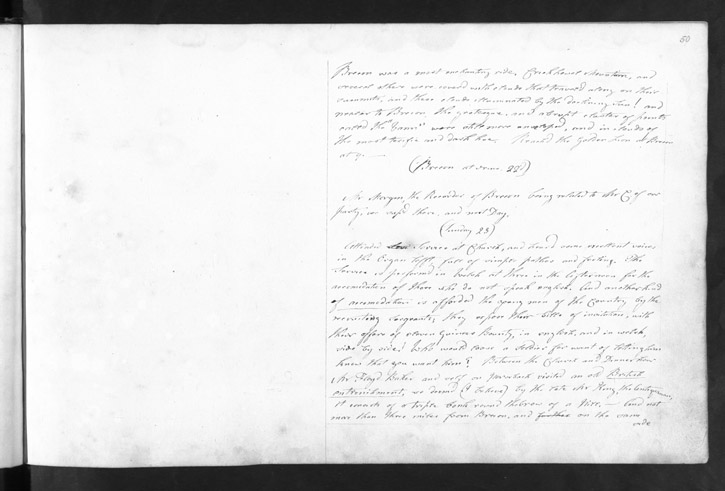 50
Brecon was a most enchanting ride. Crickhowel Mountain, and
several others were crowned with clouds that travel'd along on their
summits, and those clouds illuminated by the declining Sun! and
nearer to Brecon the grotesque, and abrupt cluster of points
called the "Vanns" were still more enveloped, and in clouds of
the most terrific and dark hue. Reach'd the Golden Lion at Brecon
at 9. —
(Brecon at rest 22d)
Mr Morgan, the Recorder of Brecon being related to Mr C of our
party, we din'd there, and next Day.
(Sunday 23)
Attended Service at Church, and heard some excellent voices
in the Organ loft, full of simple pathos and feeling. The
Service is perform'd in Welch at three in the afternoon for the
accomodation of those who do not speak english. And another kind
of accomodation is afforded the young men of the Country by the
recruiting sergeants, they expose their bills of invitation, with
their offers of eleven Guineas Bounty, in english, and in welch,
side by side! Who would lose a Soldier for want of letting him
know that you want him? Between the Church and Dinner hour
Mr Lloyd Baker and self on horseback visited an old British
entrenchment, so deem'd (I believe) by the late Mr King, the Antiquarian,
it consists of a triple bank round the brow of a Hill. — And not
more than three miles from Brecon, and on the same
side